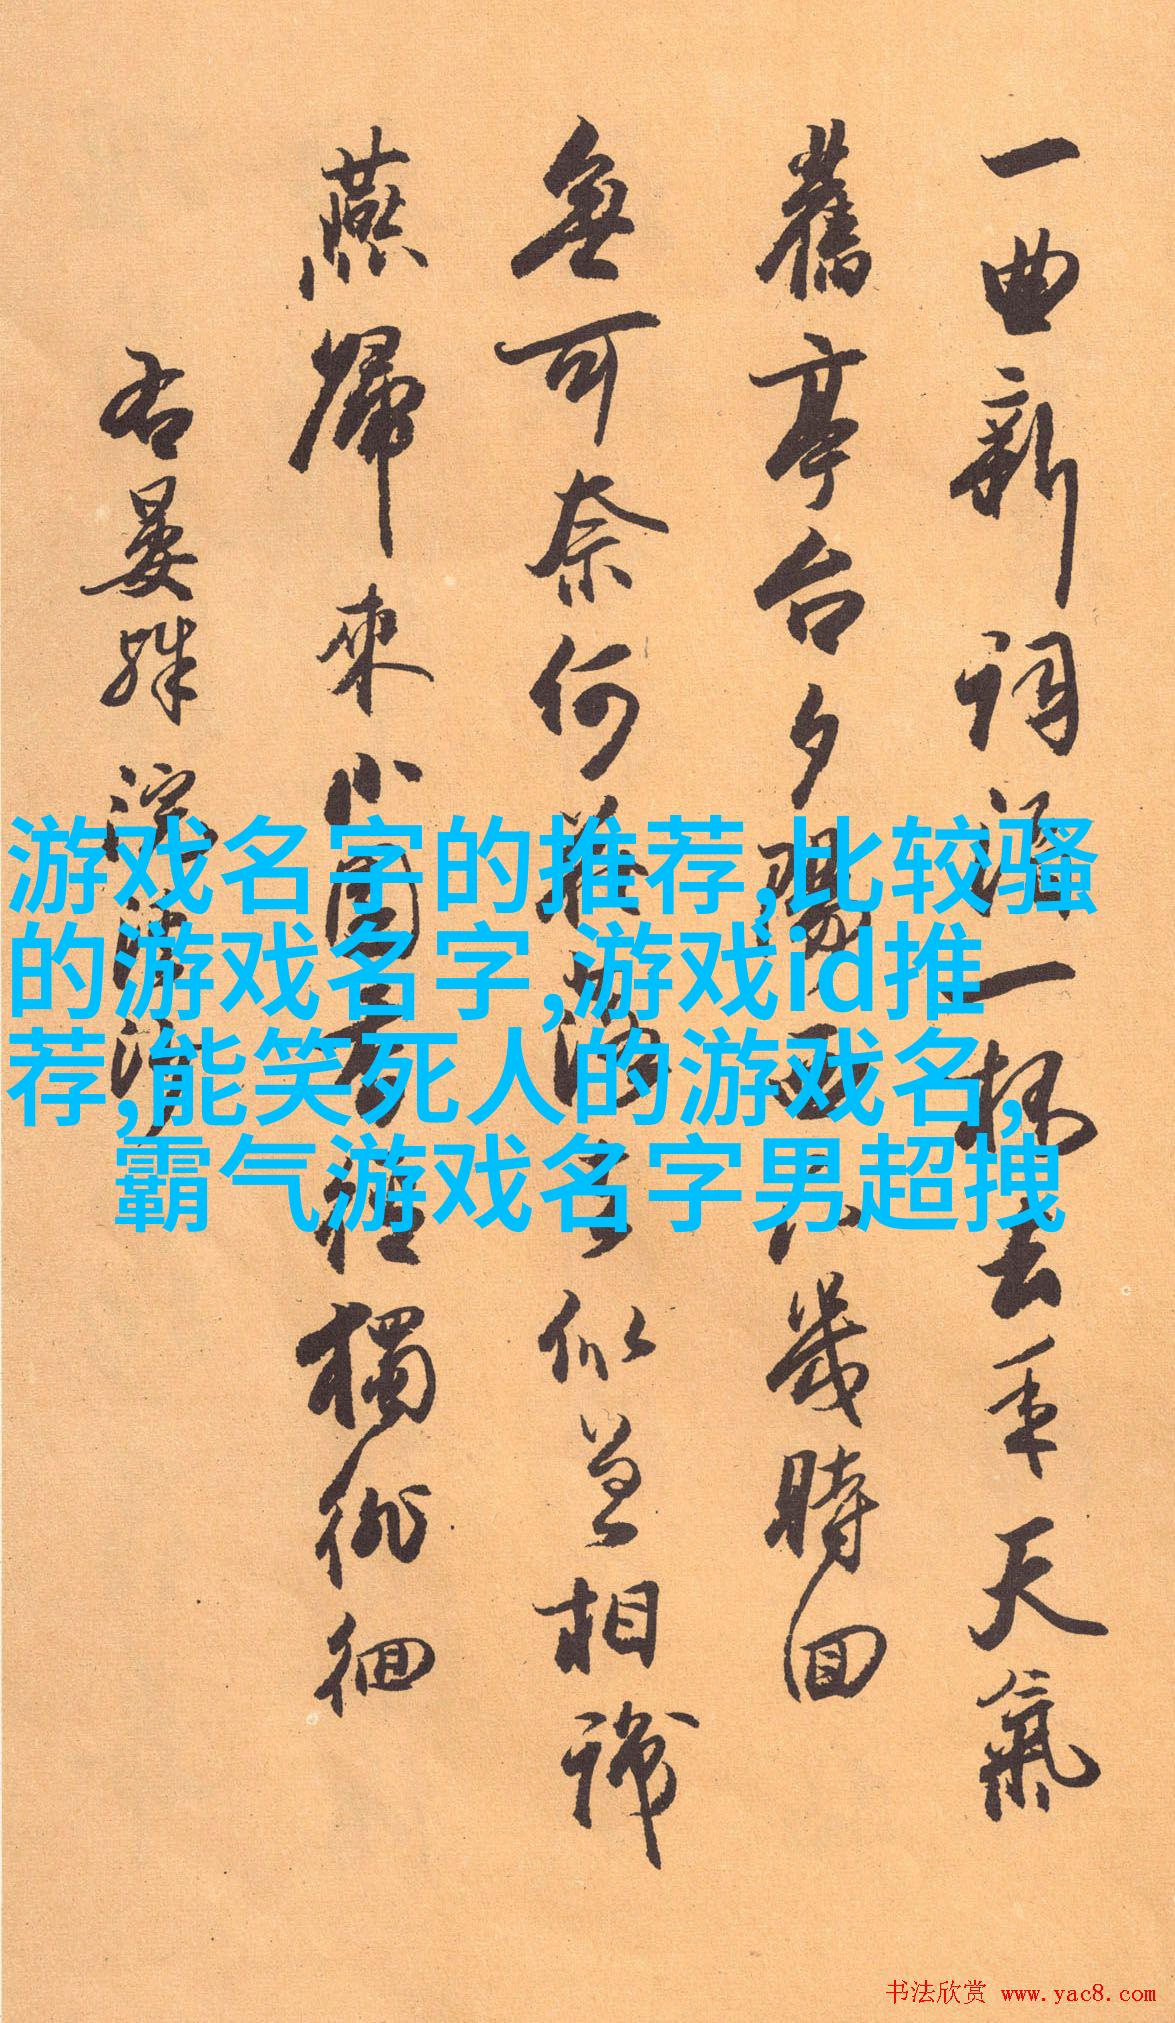 一曲新词酒一杯去年天氣
舊亭台夕陽西下幾時回
無可奈何花落去似曾相識
燕歸來小園香徑獨徘徊
右晏殊浣溪沙
游戏名字的推荐,比较骚
的游戏名字,游戏id推
荐,能笑死人的游戏名,
霸气游戏名字男超拽
书法欣赏 www.yac8.com